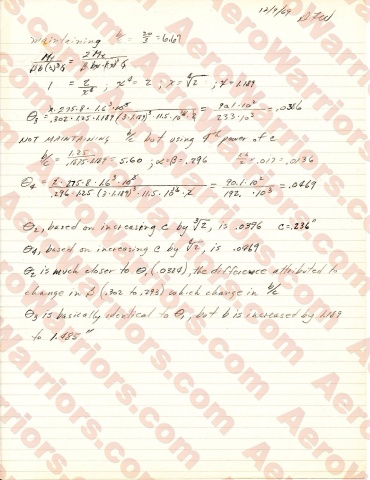 12/9/69 DFW
maintaining b/c = 20/3 = 6.67
Mt / βb(c)³G = 2Mt / β b∝ (c∝)³ G
1 = 2/x⁴ ; x⁴ = 2 ; x = ⁴√2 ; x = 1.189
θ3 = 2·275.8·1.6³·10³ / .302·1.25·1.189 (3·1.189)³·11.5·10⁶·2 = 90.1·10² / 233·10³ = .0386
NOT MAINTAINING b/c but using 4th power of c
b/c = 1.25 / = 5.60 ; α=β= .296
θ4 = 2·275.8·1.6³·10³ / .296·1.25 (3·1.189)³·11.5·10⁶·2 = 90.1·10² / 192·10³ = .0469
θ2, based on increasing c by ³√2, is .0396 c=.236"
θ4, based on increasing c by ⁴√2, is .0469
θ2 is much closer to θ1 (.0384), the difference attributed to
change in β (.302 to .293) which change in b/c
θ3 is basically identical to θ1, but b is increased by 1.189
to 1.485"
AeroWarriors.com